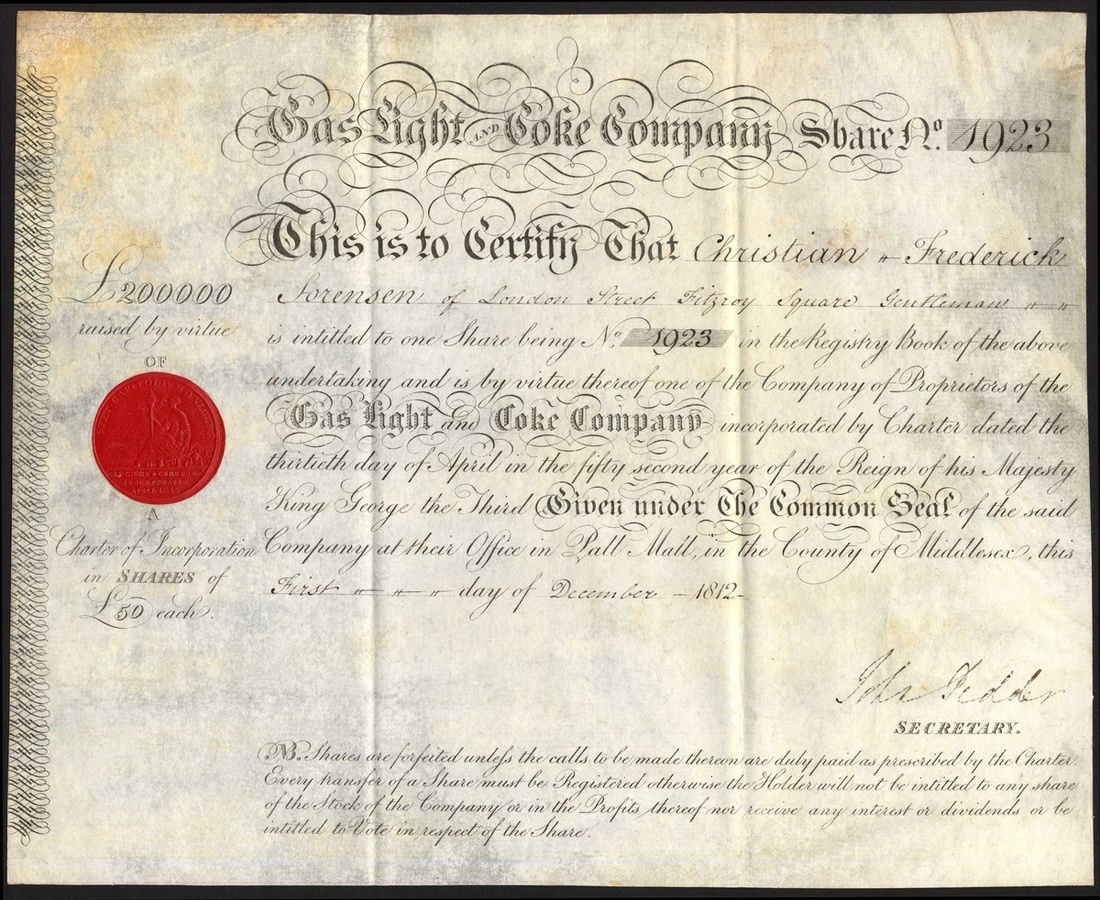 Gas Light AND Coke Company Share No. 1923
This is to Certify That Christian Frederick
Sorensen of London Street Fitzroy Square Gentleman
is intitled to one Share being No. 1923 in the Registry Book of the above
undertaking and is by virtue thereof one of the Company of Proprietors of the
Gas Light and Coke Company incorporated by Charter dated the
thirtieth day of April in the fifty second year of the Reign of his Majesty
King George the Third Given under The Common Seal of the said
Company at their Office in Pall Mall, in the County of Middlesex, this
First day of December 1812
£200000
raised by virtue
OF
A
Charter of Incorporation
in SHARES of
£50 each.
INCORPORATED
SECRETARY.
NB. Shares are forfeited unleſs the calls to be made thereon are duly paid as prescribed by the Charter.
Every transfer of a Share must be Registered otherwise the Holder will not be intitled to any share
of the Stock of the Company or in the Profits thereof nor receive any interest or dividends or be
intitled to Vote in respect of the Share.